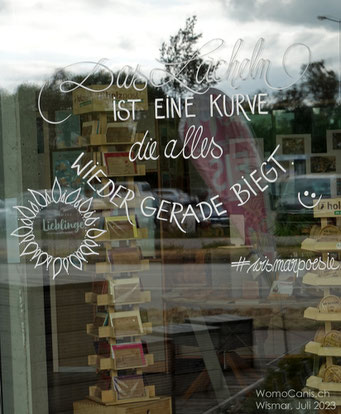 Das Lächeln
IST EINE KURVE
die alles
WIEDER GERADE BIEGT.
Lieblinge
#wismarpoesie
WomoCanis.ch
Wismar, Juli 2023